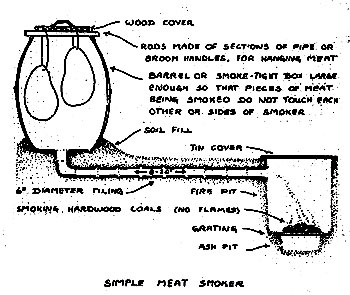 WOOD COVER
RODS MADE OF SECTIONS OF PIPE OR
BROOM HANDLES, FOR HANGING MEAT
BARREL OR SMOKE-TIGHT BOX LARGE
ENOUGH SO THAT PIECES OF MEAT
BEING SMOKED DO NOT TOUCH EACH
OTHER OR SIDES OF SMOKER
SOIL FILL
TIN COVER
8-10'
6" DIAMETER TILING
FIRE PIT
SMOKING, HARDWOOD COALS (NO FLAMES)
GRATING
ASH PIT
SIMPLE MEAT SMOKER